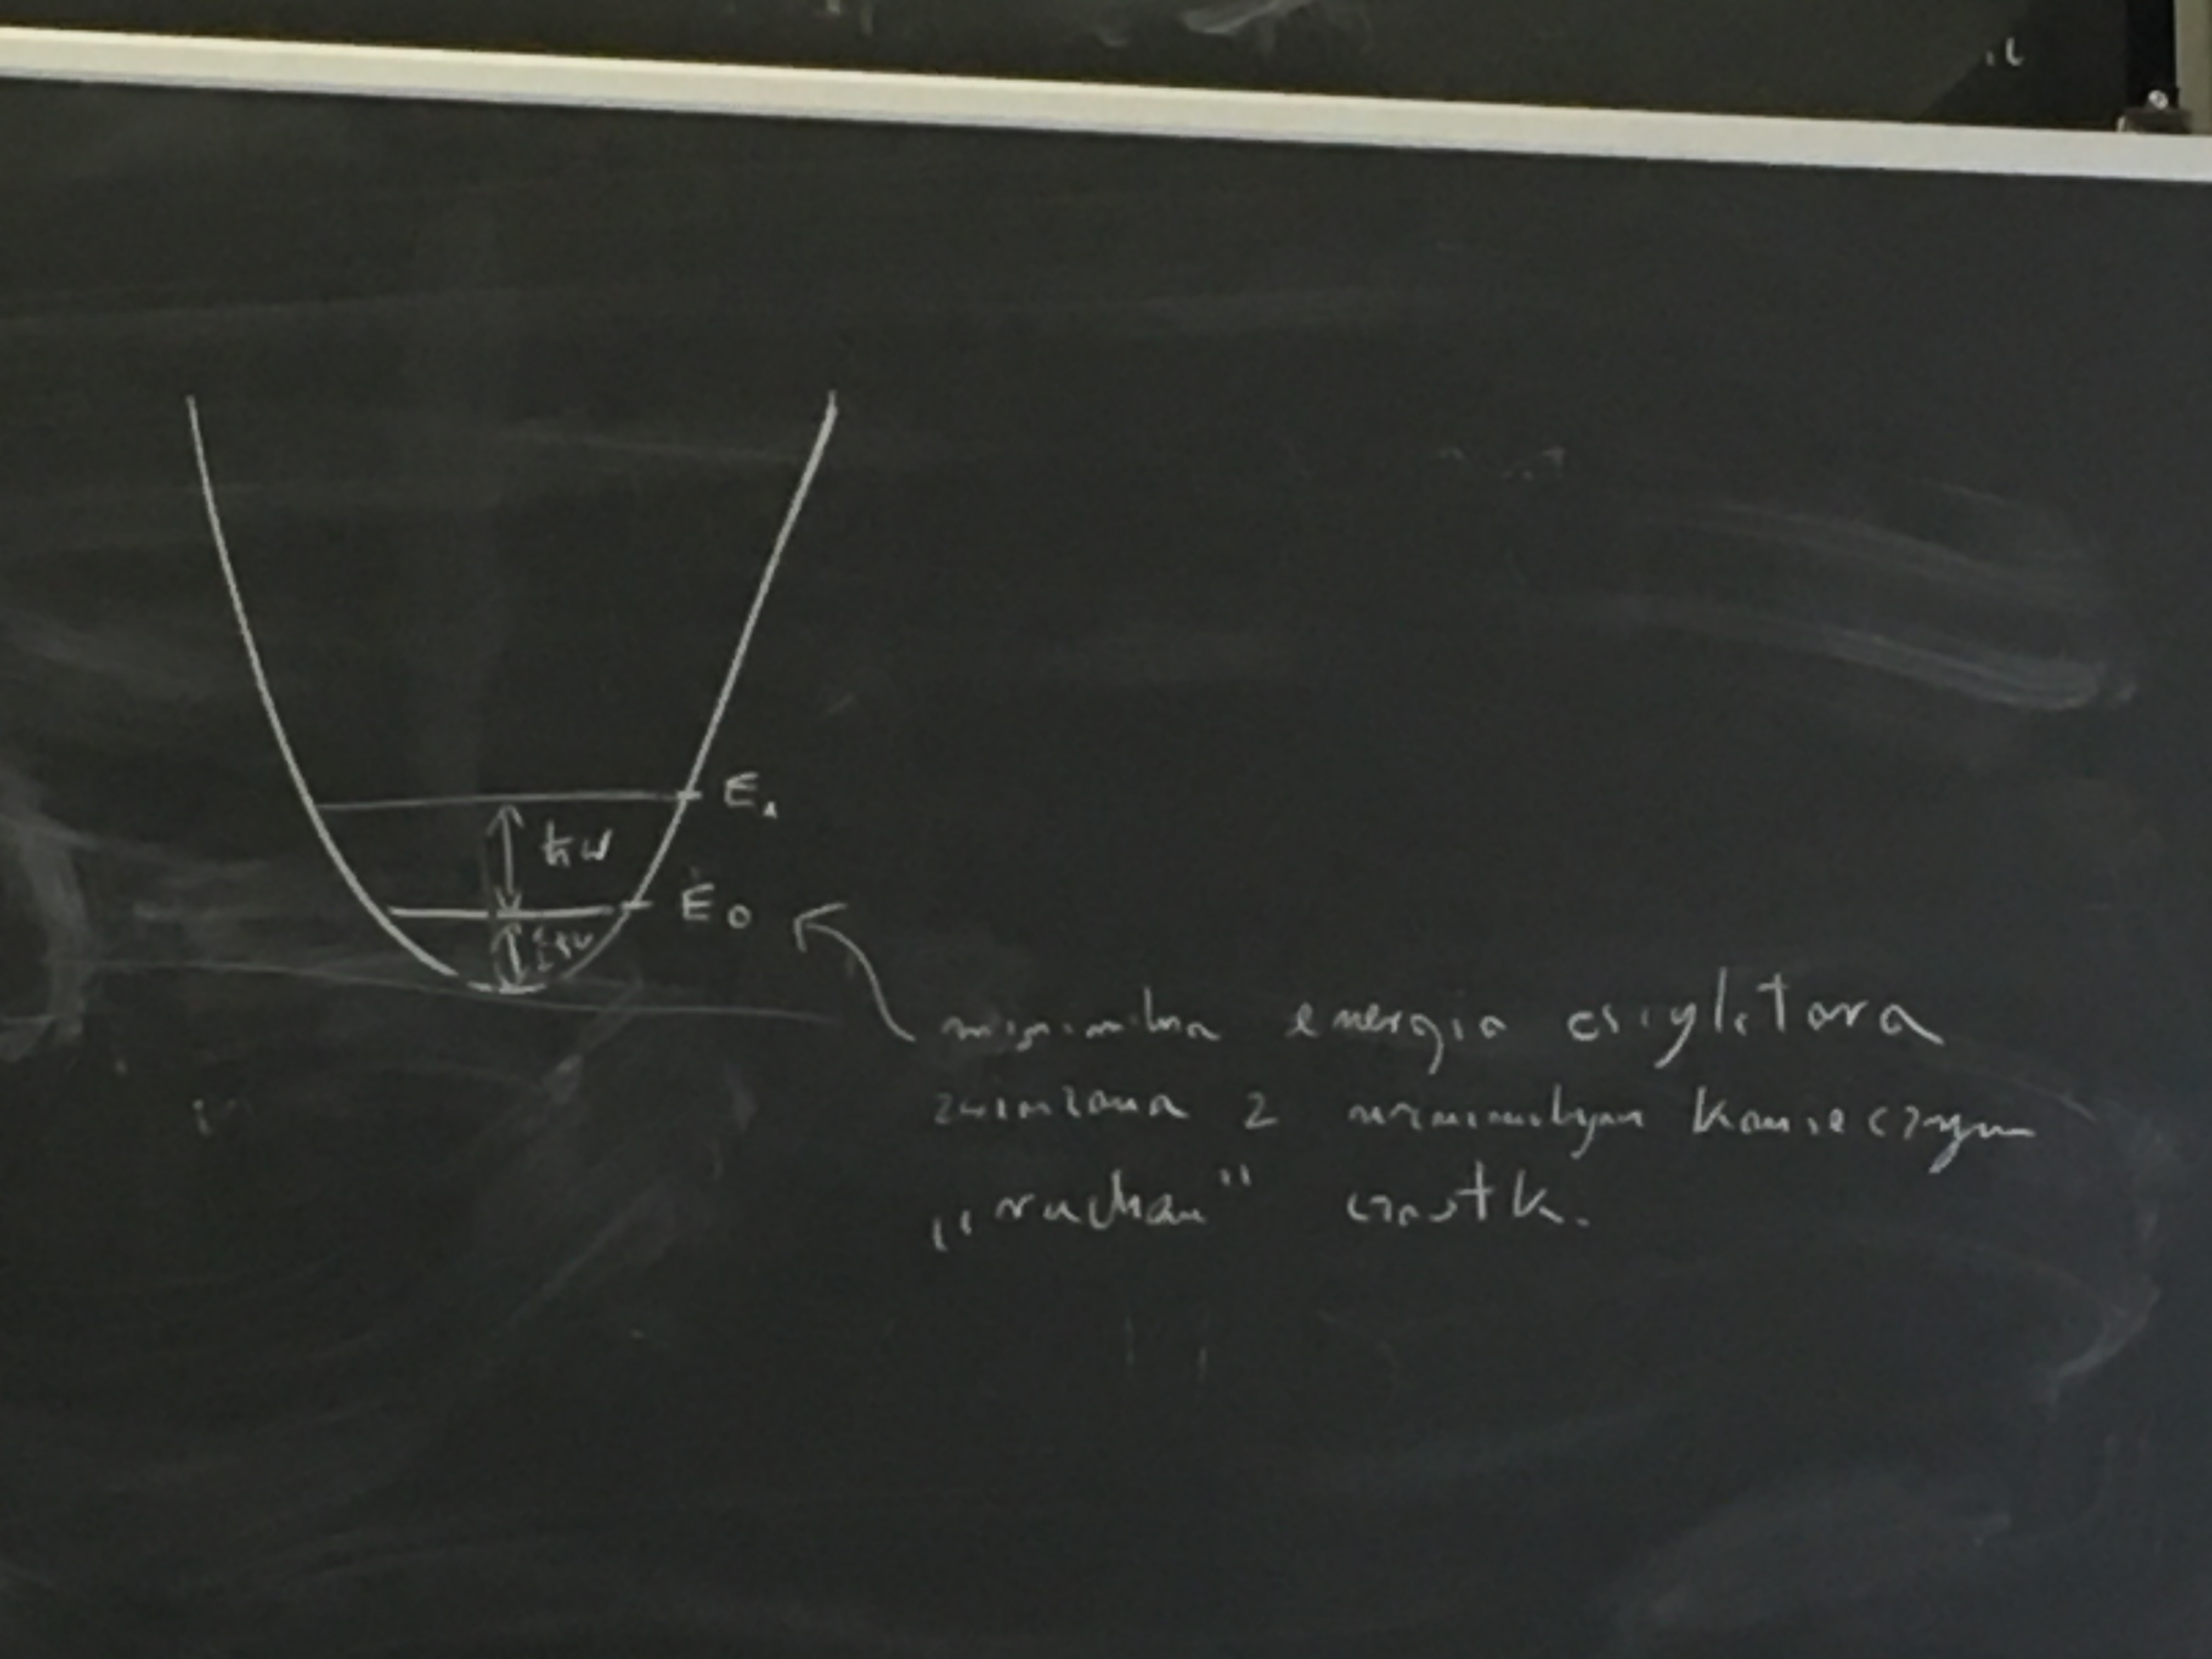 E₁
ħω
E₀
½ħω
minimalna energia oscylatora
związana z minimalnym koniecznym
„ruchem" cząstki.